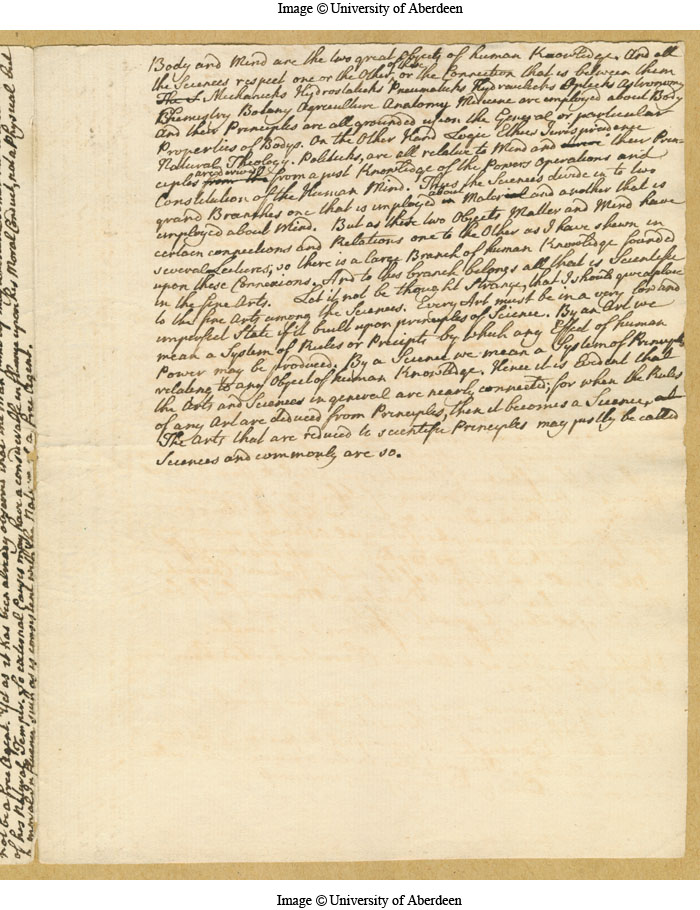 Image © University of Aberdeen
Body and Mind are the two great Objects of human Knowledge. And all
the Sciences respect one or the Other of these, or the Connection that is between them
The S Mechanicks Hydrostaticks Pneumaticks Hydraulicks Opticks Astronomy
Chemistry Botany Agriculture Anatomy Medicine are employed about Body
And their Principles are all grounded upon the General or particular
Properties of Bodys. On the Other Hand Logic Ethics Jurisprudence
Natural Theology. Politicks, are all relative to Mind and their Prin-
ciples from the are derived from a just Knowledge of the Powers Operations and
Constitution of the Human Mind. Thus the Sciences divide in to two
grand Branches one that is employed in about Material and another that is
employed about Mind. But as these two Objects Matter and Mind have
certain connections and Relations one to the Other as I have shewn in
several Lectures, so there is a large Branch of human Knowledge founded
upon these Connexions, And to this branch belongs all that is Scientifick
in the fine Arts. Let it not be thought Strange, that I should give a place
to the fine Arts among the Sciences. Every Art must be in a very low and
imperfect State if it built upon principles of Science. By an Art we
mean a System of Rules or Precepts by which any Effect of human
Power may be produced. By a Science we mean a System of Principles
relating to any Object of human Knowledge. Hence it is Evident that
the Arts and Sciences in general are nearly connected; for when the Rules
of any Art are deduced from Principles, then it becomes a Science,
The Arts that are reduced to scientific Principles may justly be called
Sciences and commonly are so.
not be a free Agent. Yet as it has been already observed that
of his Natural Temper. So external Causes may have a considerable influence upon his Moral Conduct, not a Physical but
a moral Influence such as is consistent with the Nature of a free Agent.
Image © University of Aberdeen